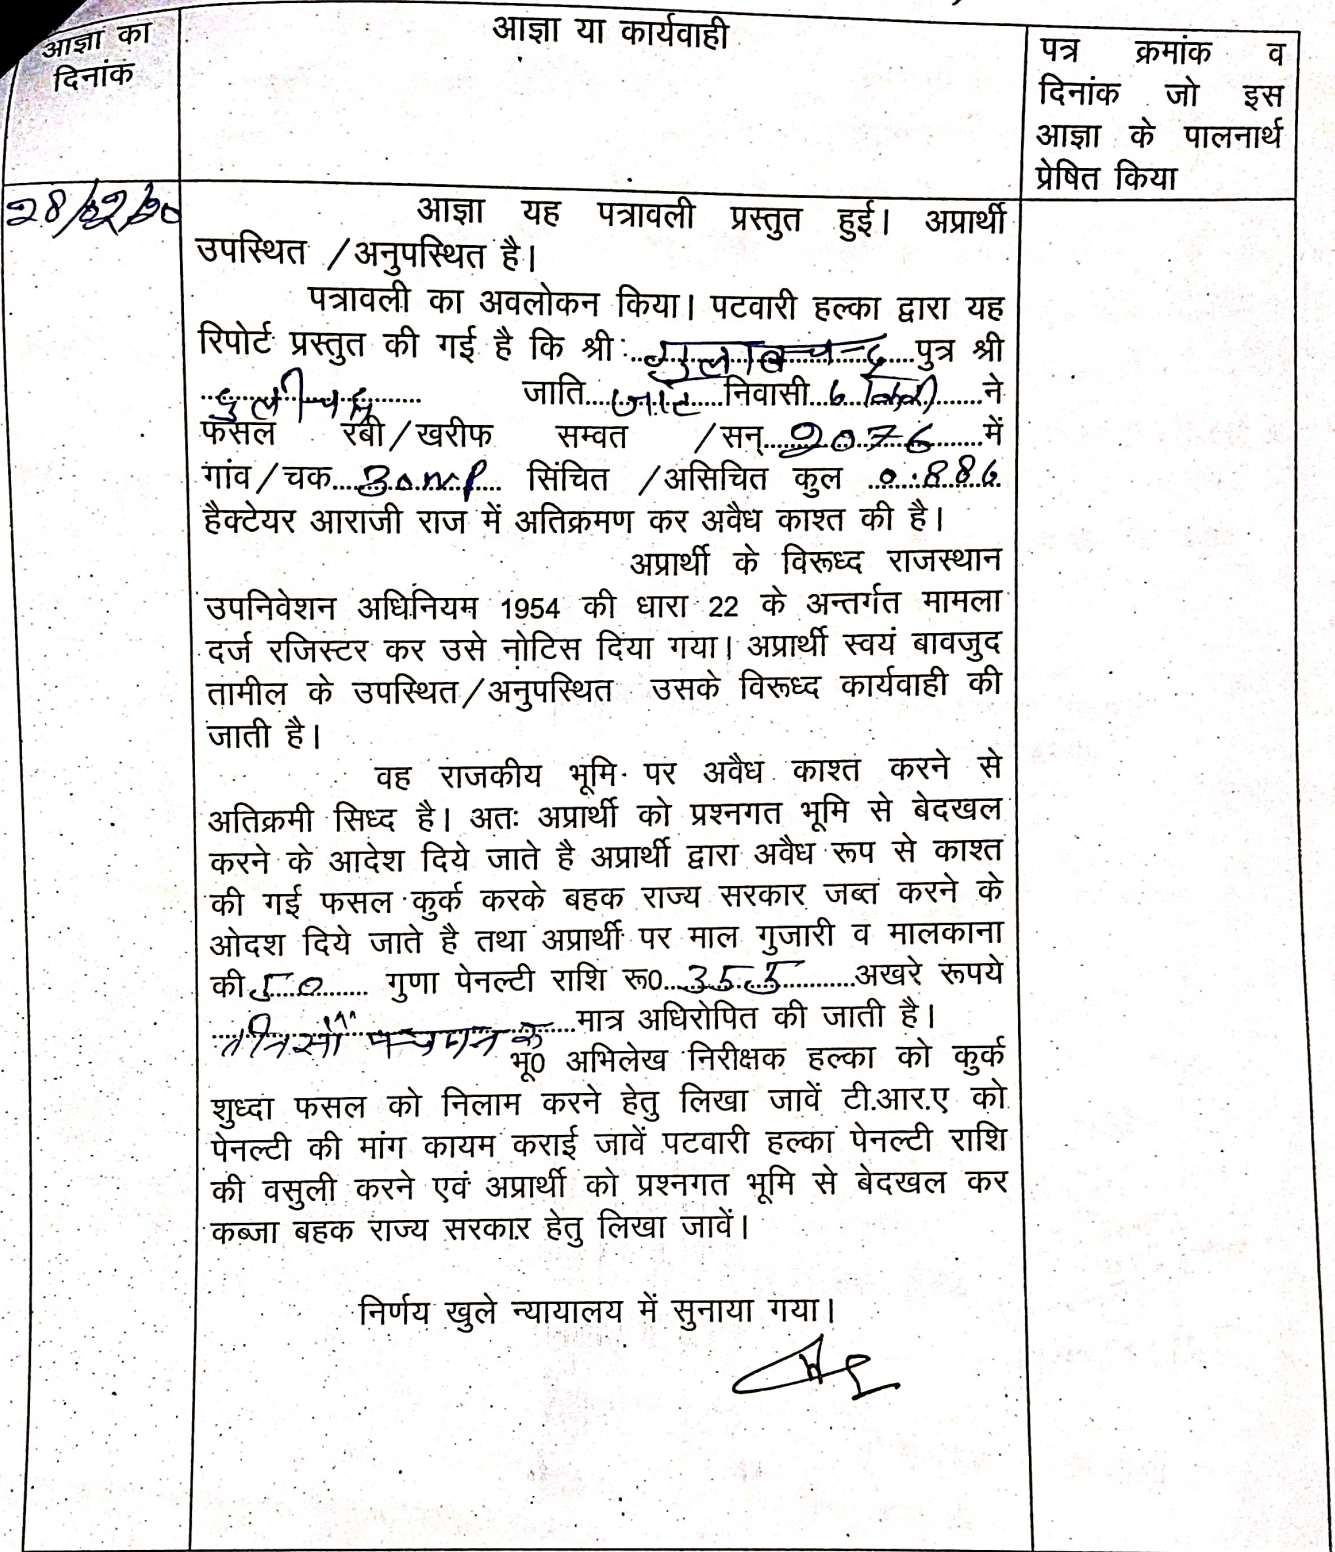 आज्ञा का
दिनांक
आज्ञा या कार्यवाही
पत्र क्रमांक व
दिनांक जो इस
आज्ञा के पालनार्थ
प्रेषित किया
28/02/20
आज्ञा यह पत्रावली प्रस्तुत हुई। अप्रार्थी
उपस्थित /अनुपस्थित है।
पत्रावली का अवलोकन किया। पटवारी हल्का द्वारा यह
रिपोर्ट प्रस्तुत की गई है कि श्री गुलाबचन्द पुत्र श्री
जाति जाट निवासी 6 ने
फसल रबी/खरीफ सम्वत /सन् 2076 में
गांव/चक 3 सिंचित /असिचित कुल 0.886
हैक्टेयर आराजी राज में अतिक्रमण कर अवैध काश्त की है।
अप्रार्थी के विरूध्द राजस्थान
उपनिवेशन अधिनियम 1954 की धारा 22 के अन्तर्गत मामला
दर्ज रजिस्टर कर उसे नोटिस दिया गया। अप्रार्थी स्वयं बावजुद
तामील के उपस्थित/अनुपस्थित उसके विरूध्द कार्यवाही की
जाती है।
वह राजकीय भूमि पर अवैध काश्त करने से
अतिक्रमी सिध्द है। अतः अप्रार्थी को प्रश्नगत भूमि से बेदखल
करने के आदेश दिये जाते है अप्रार्थी द्वारा अवैध रूप से काश्त
की गई फसल कुर्क करके बहक राज्य सरकार जब्त करने के
ओदश दिये जाते है तथा अप्रार्थी पर माल गुजारी व मालकाना
की 50 गुणा पेनल्टी राशि रू0 355 अखरे रूपये
तीन सौ पचपन रू मात्र अधिरोपित की जाती है।
भू0 अभिलेख निरीक्षक हल्का को कुर्क
शुध्दा फसल को निलाम करने हेतु लिखा जावें टी.आर.ए को
पेनल्टी की मांग कायम कराई जावें पटवारी हल्का पेनल्टी राशि
की वसुली करने एवं अप्रार्थी को प्रश्नगत भूमि से बेदखल कर
कब्जा बहक राज्य सरकार हेतु लिखा जावें।
निर्णय खुले न्यायालय में सुनाया गया।